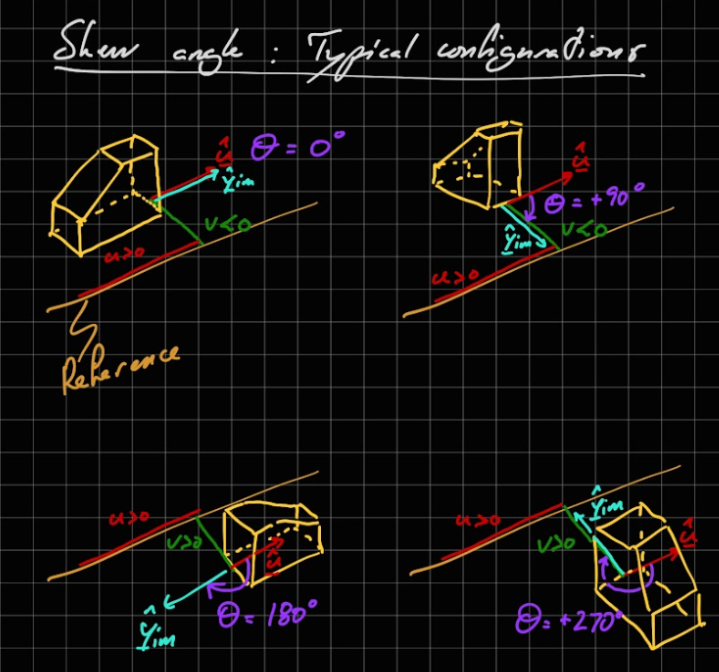 Skew angle : Typical configurations
û θ = 0°
ŷim
v<0
u>0
Reference
û
θ = +90°
ŷim v<0
u>0
u>0
v>0
û
θ = 180°
ŷim
u>0
ŷim
v>0
û
θ = +270°